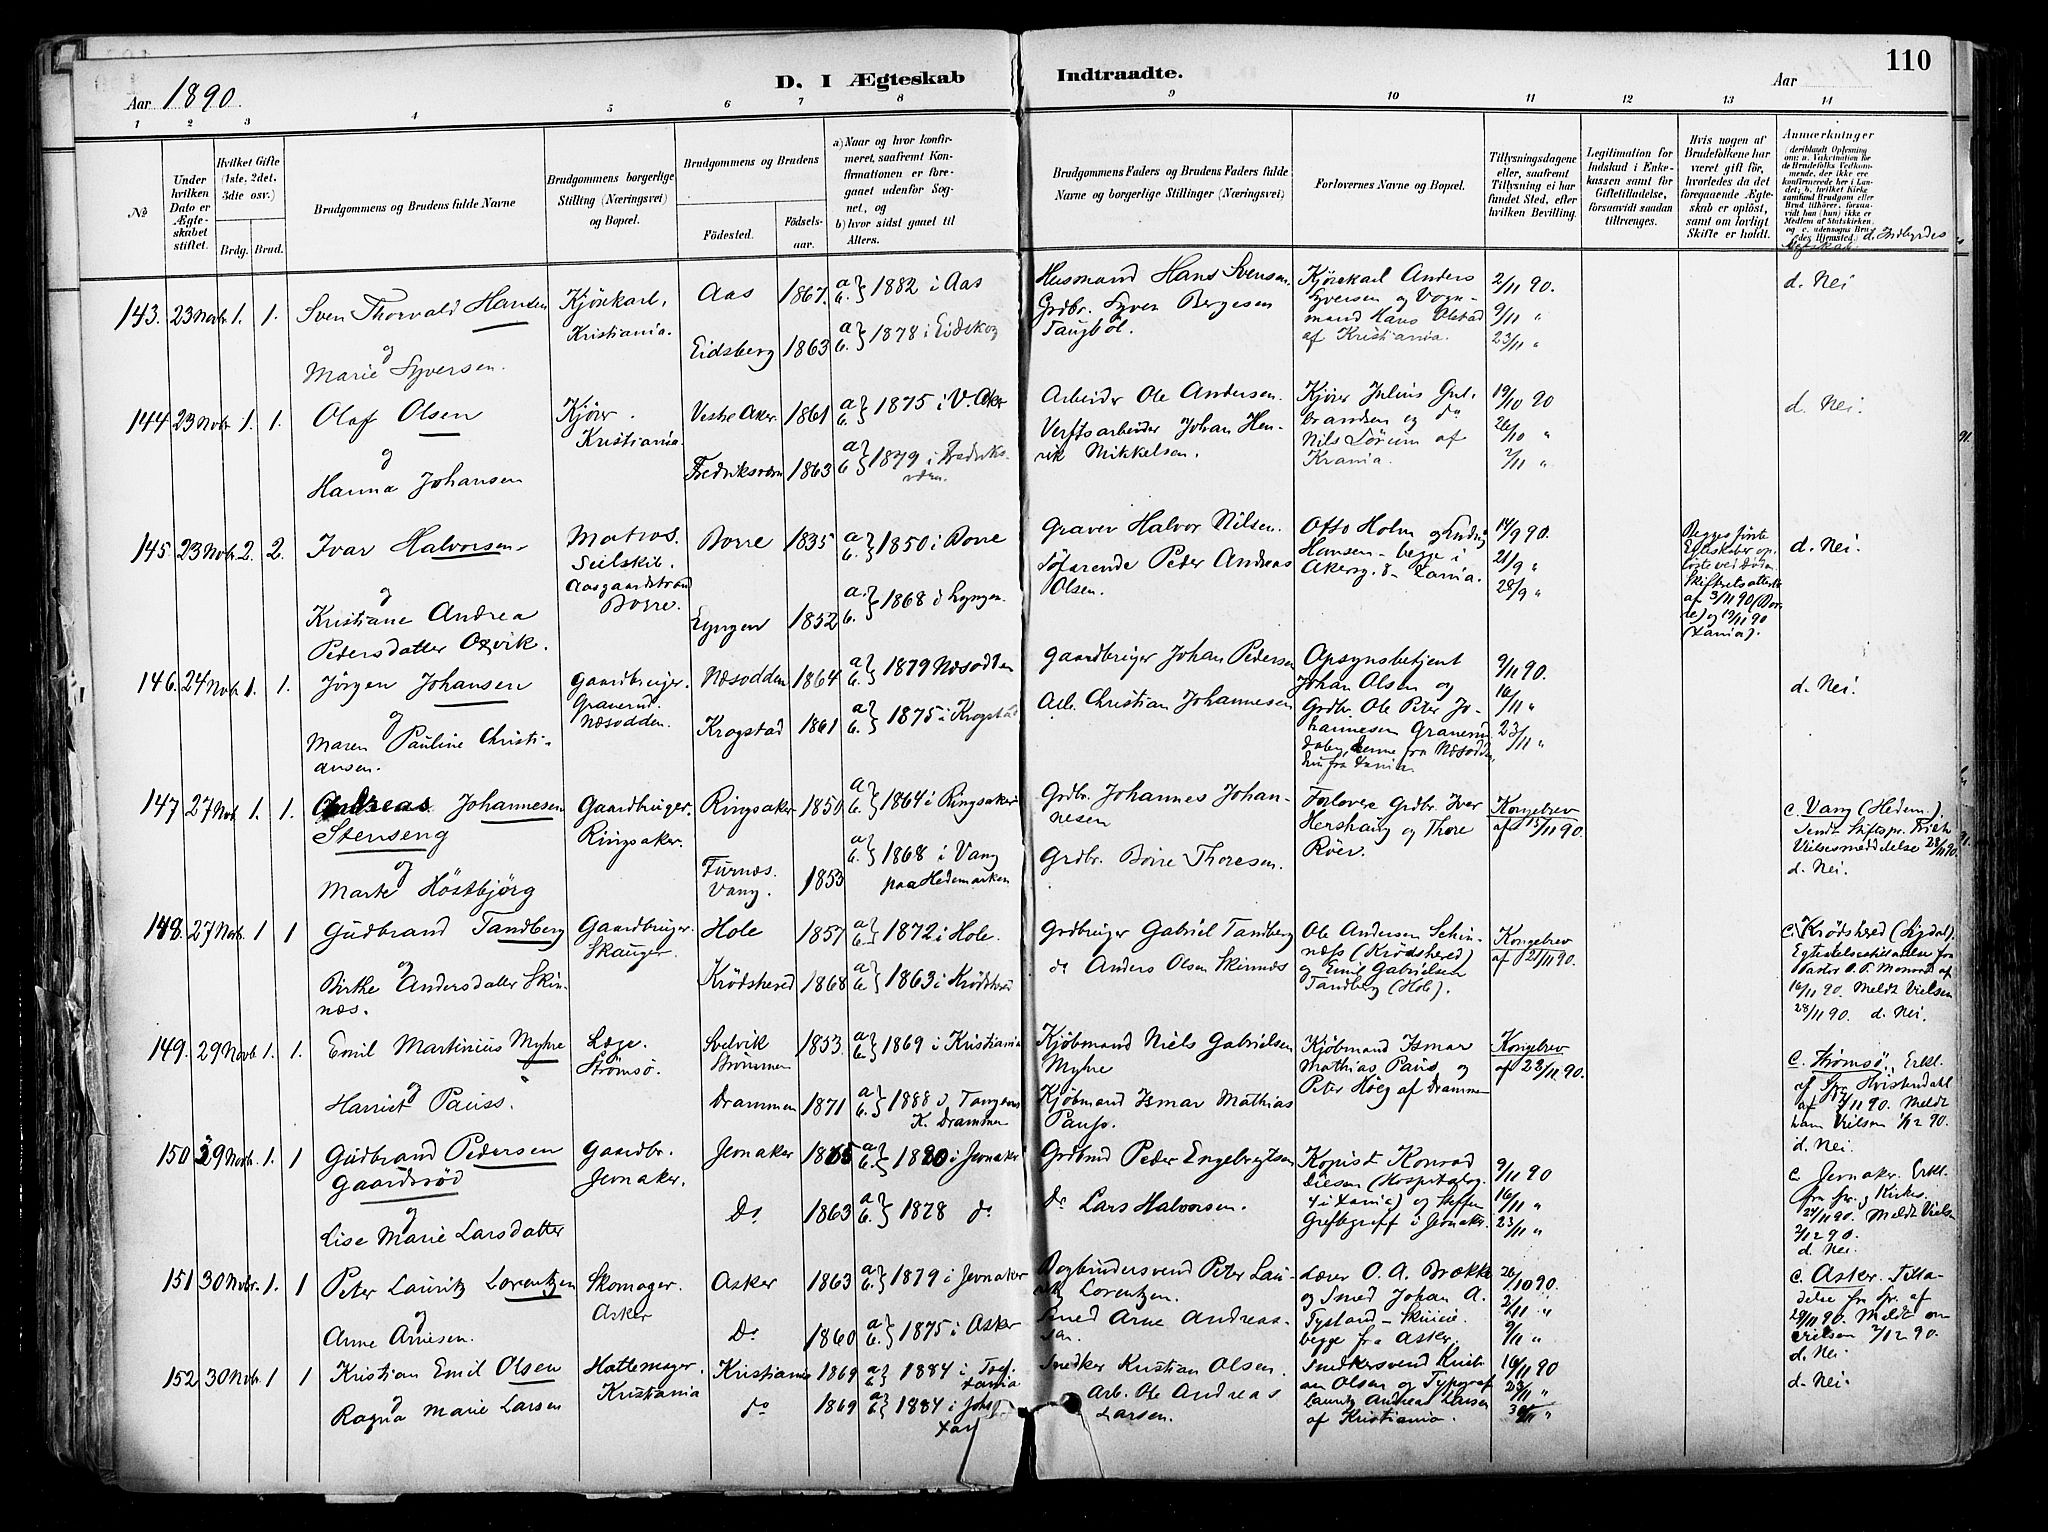 110
D. I Ægteskab Indtraadte.
Aar 1890.
Aar
1 2 3 4 5 6 7 8 9 10 11 12 13 14
No
Under hvilken Dato er Ægteskabet stiftet.
Hvilket Gifte (1ste, 2det, 3die osv.)
Brdg. Brud.
Brudgommens og Brudens fulde Navne
Brudgommens borgerlige Stilling (Næringsvei) og Bopæl.
Brudgommens og Brudens
Fødested.
Fødselsaar.
a) Naar og hvor konfirmeret, saafremt Konfirmationen er foregaaet udenfor Sognet, og
b) hvor sidst gaaet til Alters.
Brudgommens Faders og Brudens Faders fulde Navne og borgerlige Stillinger (Næringsvei)
Forlovernes Navne og Bopæl.
Tillysningsdagene eller, saafremt Tillysning ei har fundet Sted, efter hvilken Bevilling.
Legitimation for Indskud i Enkekassen samt for Giftetilladelse, forsaavidt saadan tiltrænges.
Hvis nogen af Brudefolkene har været gift før, hvorledes da det foregaaende Ægteskab er opløst, samt om lovligt Skifte er holdt.
Anmærkninger
143. 23 Novb. 1. 1. Sven Thorvald Hansen
og
Marie Syversen.
Kjørekarl,
Kristiania.
Aas 1867. a b } 1882 i Aas
Eidsberg 1863 a b. } 1878 i Eidskog
Husmand Hans Svensen
Grdbr. Syver Bergesen
Tangböl.
Kjørekarl Anders
Syversen og Vognmand Hans Olstad
af Kristiania.
2/11 90.
9/11 "
23/11 "
d. Nei
144 23 Novb. 1. 1. Olaf Olsen
og
Hanna Johansen
Kjører.
Kristiania.
Vestre Aker 1861 a b. } 1875 i V. Aker
Fredriksværn 1863 a b. } 1879 i Fredriksværn
Arbeider Ole Andersen.
Verftsarbeider Johan Henrik Mikkelsen.
Kjører Julius Gulbrandsen og do
Nils Sørum af
Krania.
19/10 90
26/10 "
2/11 "
d. Nei.
145. 23 Novb. 2. 2. Ivar Halvorsen
og
Kristiane Andrea
Pedersdatter Oxvik.
Matros.
Seilskib.
Aasgaardstrand
Borre.
Borre 1835 a b. } 1850 i Borre
Lyngen 1852 a. b. } 1868 i Lyngen.
Graver Halvor Nilsen.
Søfarende Peter Andreas
Olsen.
Otto Holm og
Hansen – begge i
14/9 90.
21/9 "
28/9 "
Begges første
af 3/11 90 (Borre) og 19/11 90
(Xania).
d. Nei.
146. 24 Novb. 1. 1. Jørgen Johansen
og
Maren Pauline Christiansen.
Gaardbruger.
Graverud.
Næsodden.
Næsodden 1864 a b. } 1879 Næsodden
Krogstad 1861 a b. } 1875 i Krogstad
Gaardbruger Johan Pedersen
Arb. Christian Johannesen
Opsynsbetjent
Johan Olsen og
Grdbr. Ole Peter Johannesen
9/11 90.
16/11 "
23/11 "
d. Nei.
147 27 Novb. 1. 1. Andreas Johannesen
Stenseng
og
Marte Höstbjörg
Gaardbruger.
Ringsaker.
Ringsaker 1850 a b. } 1864 i Ringsaker
Furnæs.
Vang. 1853 a b. } 1868 i Vang
paa Hedemarken
Grdbr. Johannes Johannesen
Grdbr. Börre Thoresen.
Forlovere Grdbr. Iver
Hershaug og Thore
Röer.
Kongebrev
af 15/11 90.
c. Vang (Hedem.).
Vielsesmeddelelse 28/11 90.
d. Nei.
148. 27 Novb. 1 1 Gudbrand Tandberg
og
Birthe Andersdatter Skinnæs.
Gaardbruger.
Skauger.
Hole 1857 a b. } 1872 i Hole.
Krödshered 1868 a b } 1863 i Krödshered
Grdbruger Gabriel Tandberg
do Anders Olsen Skinnæs
Ole Andersen Schinnæss (Krödshered)
og Emil Gabrielsen
Tandberg (Hole).
Kongebrev
af 21/11 90.
c. Krödshered (Sigdal).
16/11 90. Meldt Vielsen
28/11 90. d. Nei.
149. 29 Novb. 1. 1. Emil Martinius Myhre
og
Harriet Pauss.
Læge.
Strømsø.
Svelvik
Strömmen 1853 a b. } 1869 i Kristiania
Drammen 1871 a b. } 1888 i Tangens
K. Drammen
Kjøbmand Niels Gabrielsen
Myhre
Kjøbmand Ismar Mathias
Pauss.
Kjøbmand Ismar
Mathias Paus og
Peter Höeg af Drammen
Kongebrev
af 28/11 90.
c. Strømsø, Erkl.
90. Meldt
ham Vielsen 1/12 90.
d. Nei.
150 29 Novb. 1. 1 Gudbrand Pedersen
Gaardsröd
og
Lise Marie Larsdatter
Gaardbr.
Jevnaker.
Jevnaker 1865 a b. } 1880 i Jevnaker
Do 1863 a b. } 1878 do
Grdbmd Peder Engebregtsen
Do Lars Halvorsen.
Kopist Konrad
i Xania) og Steffen
Greftegreff i Jevnaker.
9/11 90
16/11 "
23/11 "
c. Jevnaker. Erkl.
24/11 90. Meldt Vielsen
2/12 90.
d. Nei.
151 30 Novbr. 1. 1 Peter Lauritz Lorentzen
og
Anne Arnesen.
Skomager.
Asker
Asker 1863 a b. } 1879 i Jevnaker
Do 1860 a b. } 1875 i Asker
Bogbindersvend Peter Lauritz Lorentzen.
Smed Arne Andreassen.
Lærer O. A. Brække
og Smed Johan A.
begge fra Asker.
26/10 90.
2/11 "
9/11 "
c. Asker. Tilladelse fra Spr. af
29/11 90. Meldt om
Vielsen 2/12 90.
d. Nei
152 30 Novb. 1 1 Kristian Emil Olsen
og
Ragna Marie Larsen
Hattemager.
Kristiania
Kristiania 1869 a b } 1884 i
Xania
do 1869 a b. } 1884 i Johs
Snedker Kristian Olsen.
Arb. Ole Andreas
Larsen.
Snedkersvend Kristian Olsen og Typograf
Lauritz Andreas Larsen
af Kristiania.
16/11 90
23/11 "
30/11 "
d. Nei.